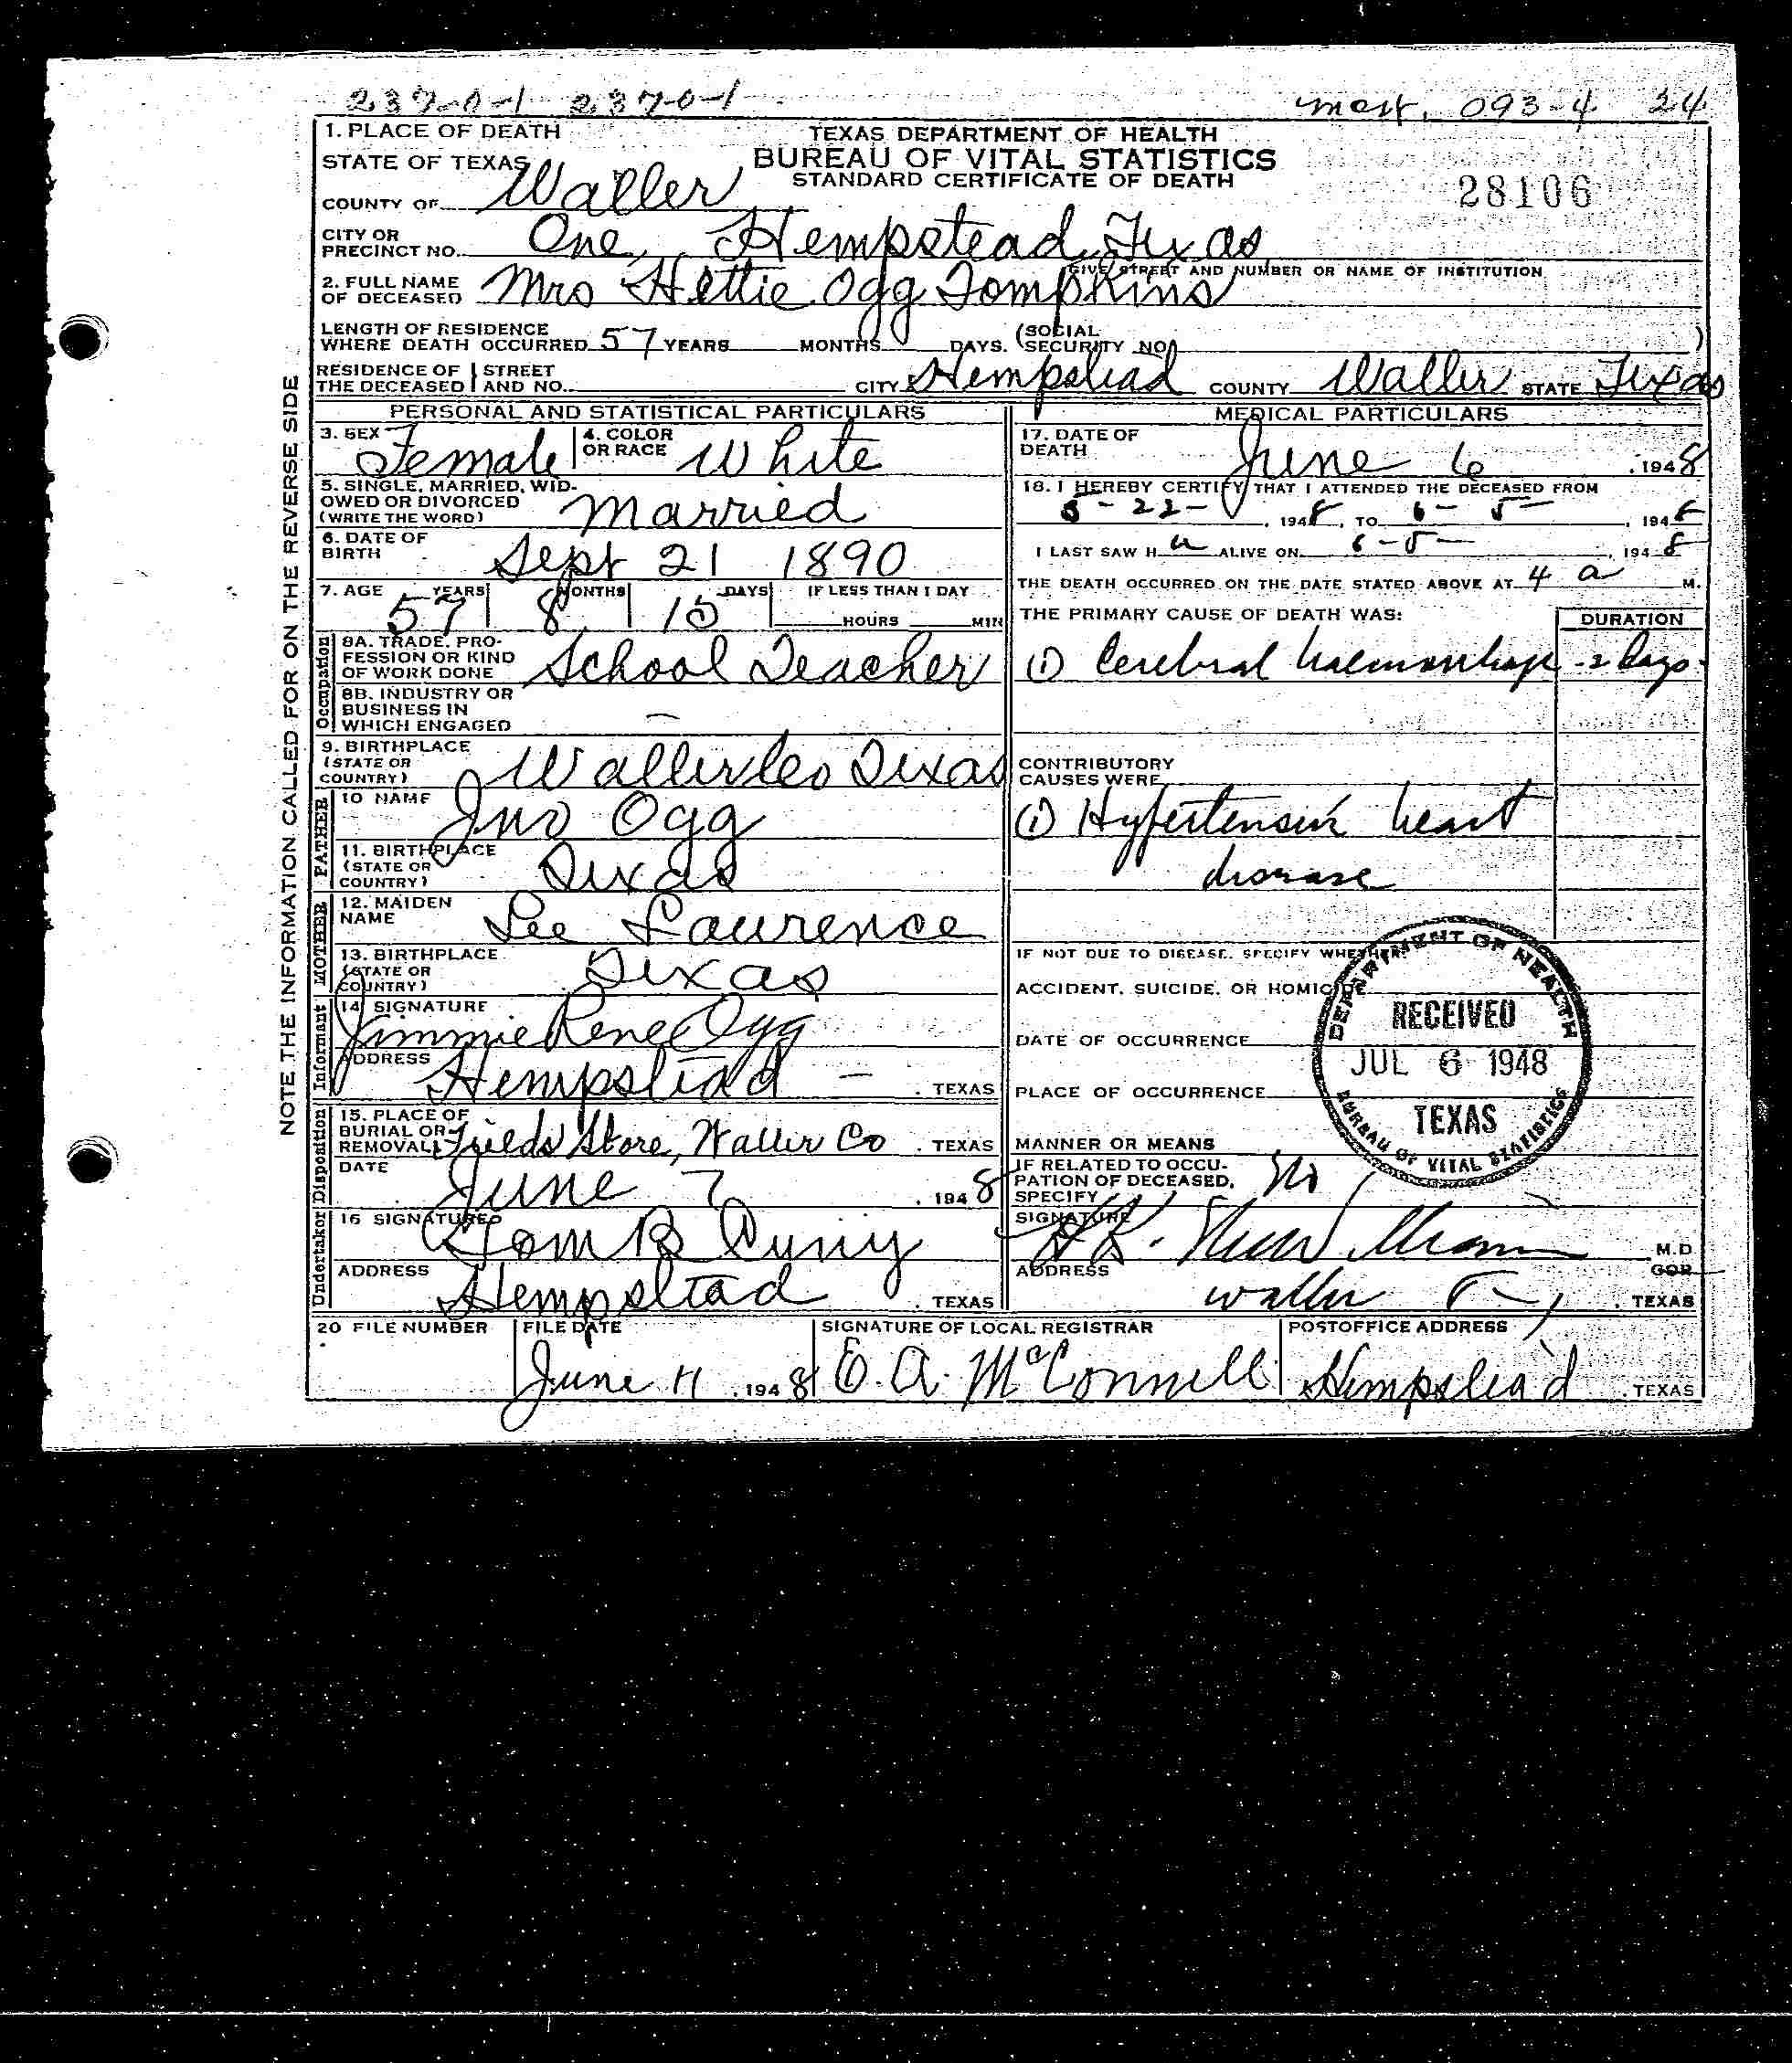 237-0-1 237-0-1 093-4 24
TEXAS DEPARTMENT OF HEALTH
BUREAU OF VITAL STATISTICS
STANDARD CERTIFICATE OF DEATH
28106
NOTE THE INFORMATION CALLED FOR ON THE REVERSE SIDE
1. PLACE OF DEATH
STATE OF TEXAS
COUNTY OF Waller
CITY OR
PRECINCT NO. One, Hempstead, Texas
GIVE STREET AND NUMBER OR NAME OF INSTITUTION
2. FULL NAME
OF DECEASED Mrs Hettie Ogg Tompkins
LENGTH OF RESIDENCE
WHERE DEATH OCCURRED 57 YEARS MONTHS DAYS. (SOCIAL
SECURITY NO. )
RESIDENCE OF THE DECEASED STREET AND NO. CITY Hempstead COUNTY Waller STATE Texas
PERSONAL AND STATISTICAL PARTICULARS
3. SEX Female 4. COLOR OR RACE White
5. SINGLE, MARRIED, WID-
OWED OR DIVORCED
(WRITE THE WORD) Married
6. DATE OF
BIRTH Sept 21 1890
7. AGE YEARS MONTHS DAYS IF LESS THAN 1 DAY
57 8 15 HOURS MIN
Occupation
8A. TRADE, PRO-
FESSION OR KIND
OF WORK DONE School Teacher
8B. INDUSTRY OR
BUSINESS IN
WHICH ENGAGED —
9. BIRTHPLACE
(STATE OR
COUNTRY) Waller Co Texas
FATHER
10 NAME Jno Ogg
11. BIRTHPLACE
(STATE OR
COUNTRY) Texas
MOTHER
12. MAIDEN
NAME Lee Laurence
13. BIRTHPLACE
(STATE OR
COUNTRY) Texas
Informant
14 SIGNATURE
Jimmie Rene Ogg
ADDRESS
Hempstead — . TEXAS
Disposition
15. PLACE OF
BURIAL OR
REMOVAL Fields Store, Waller Co . TEXAS
DATE
June 7 , 1948
Undertaker
16 SIGNATURE
Tom B
ADDRESS
Hempstead . TEXAS
MEDICAL PARTICULARS
17. DATE OF
DEATH June 6 , 1948
18. I HEREBY CERTIFY THAT I ATTENDED THE DECEASED FROM
5-22- , 1948, TO 6-5- , 1948
I LAST SAW H ALIVE ON 6-5- , 1948
THE DEATH OCCURRED ON THE DATE STATED ABOVE AT 4 a M.
THE PRIMARY CAUSE OF DEATH WAS: DURATION
(1) Cerebral haemorrhage - 2 days -
CONTRIBUTORY
CAUSES WERE
(1) Hypertensive heart
disease
IF NOT DUE TO DISEASE, SPECIFY WHETHER
ACCIDENT, SUICIDE, OR HOMICIDE
DATE OF OCCURRENCE
PLACE OF OCCURRENCE
MANNER OR MEANS
IF RELATED TO OCCU-
PATION OF DECEASED,
SPECIFY No
SIGNATURE
M.D.
ADDRESS
Waller . TEXAS
DEPARTMENT OF HEALTH
RECEIVED
JUL 6 1948
TEXAS
BUREAU OF VITAL STATISTICS
20 FILE NUMBER FILE DATE SIGNATURE OF LOCAL REGISTRAR POSTOFFICE ADDRESS
June 11 , 1948 E. A. McConnell Hempstead . TEXAS